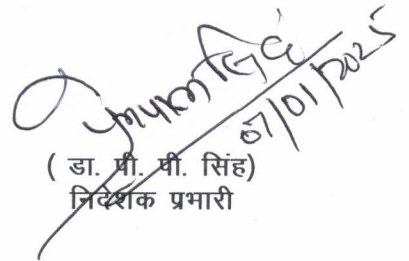 07/01/2025
( डा. पी. पी. सिंह)
निदेशक प्रभारी